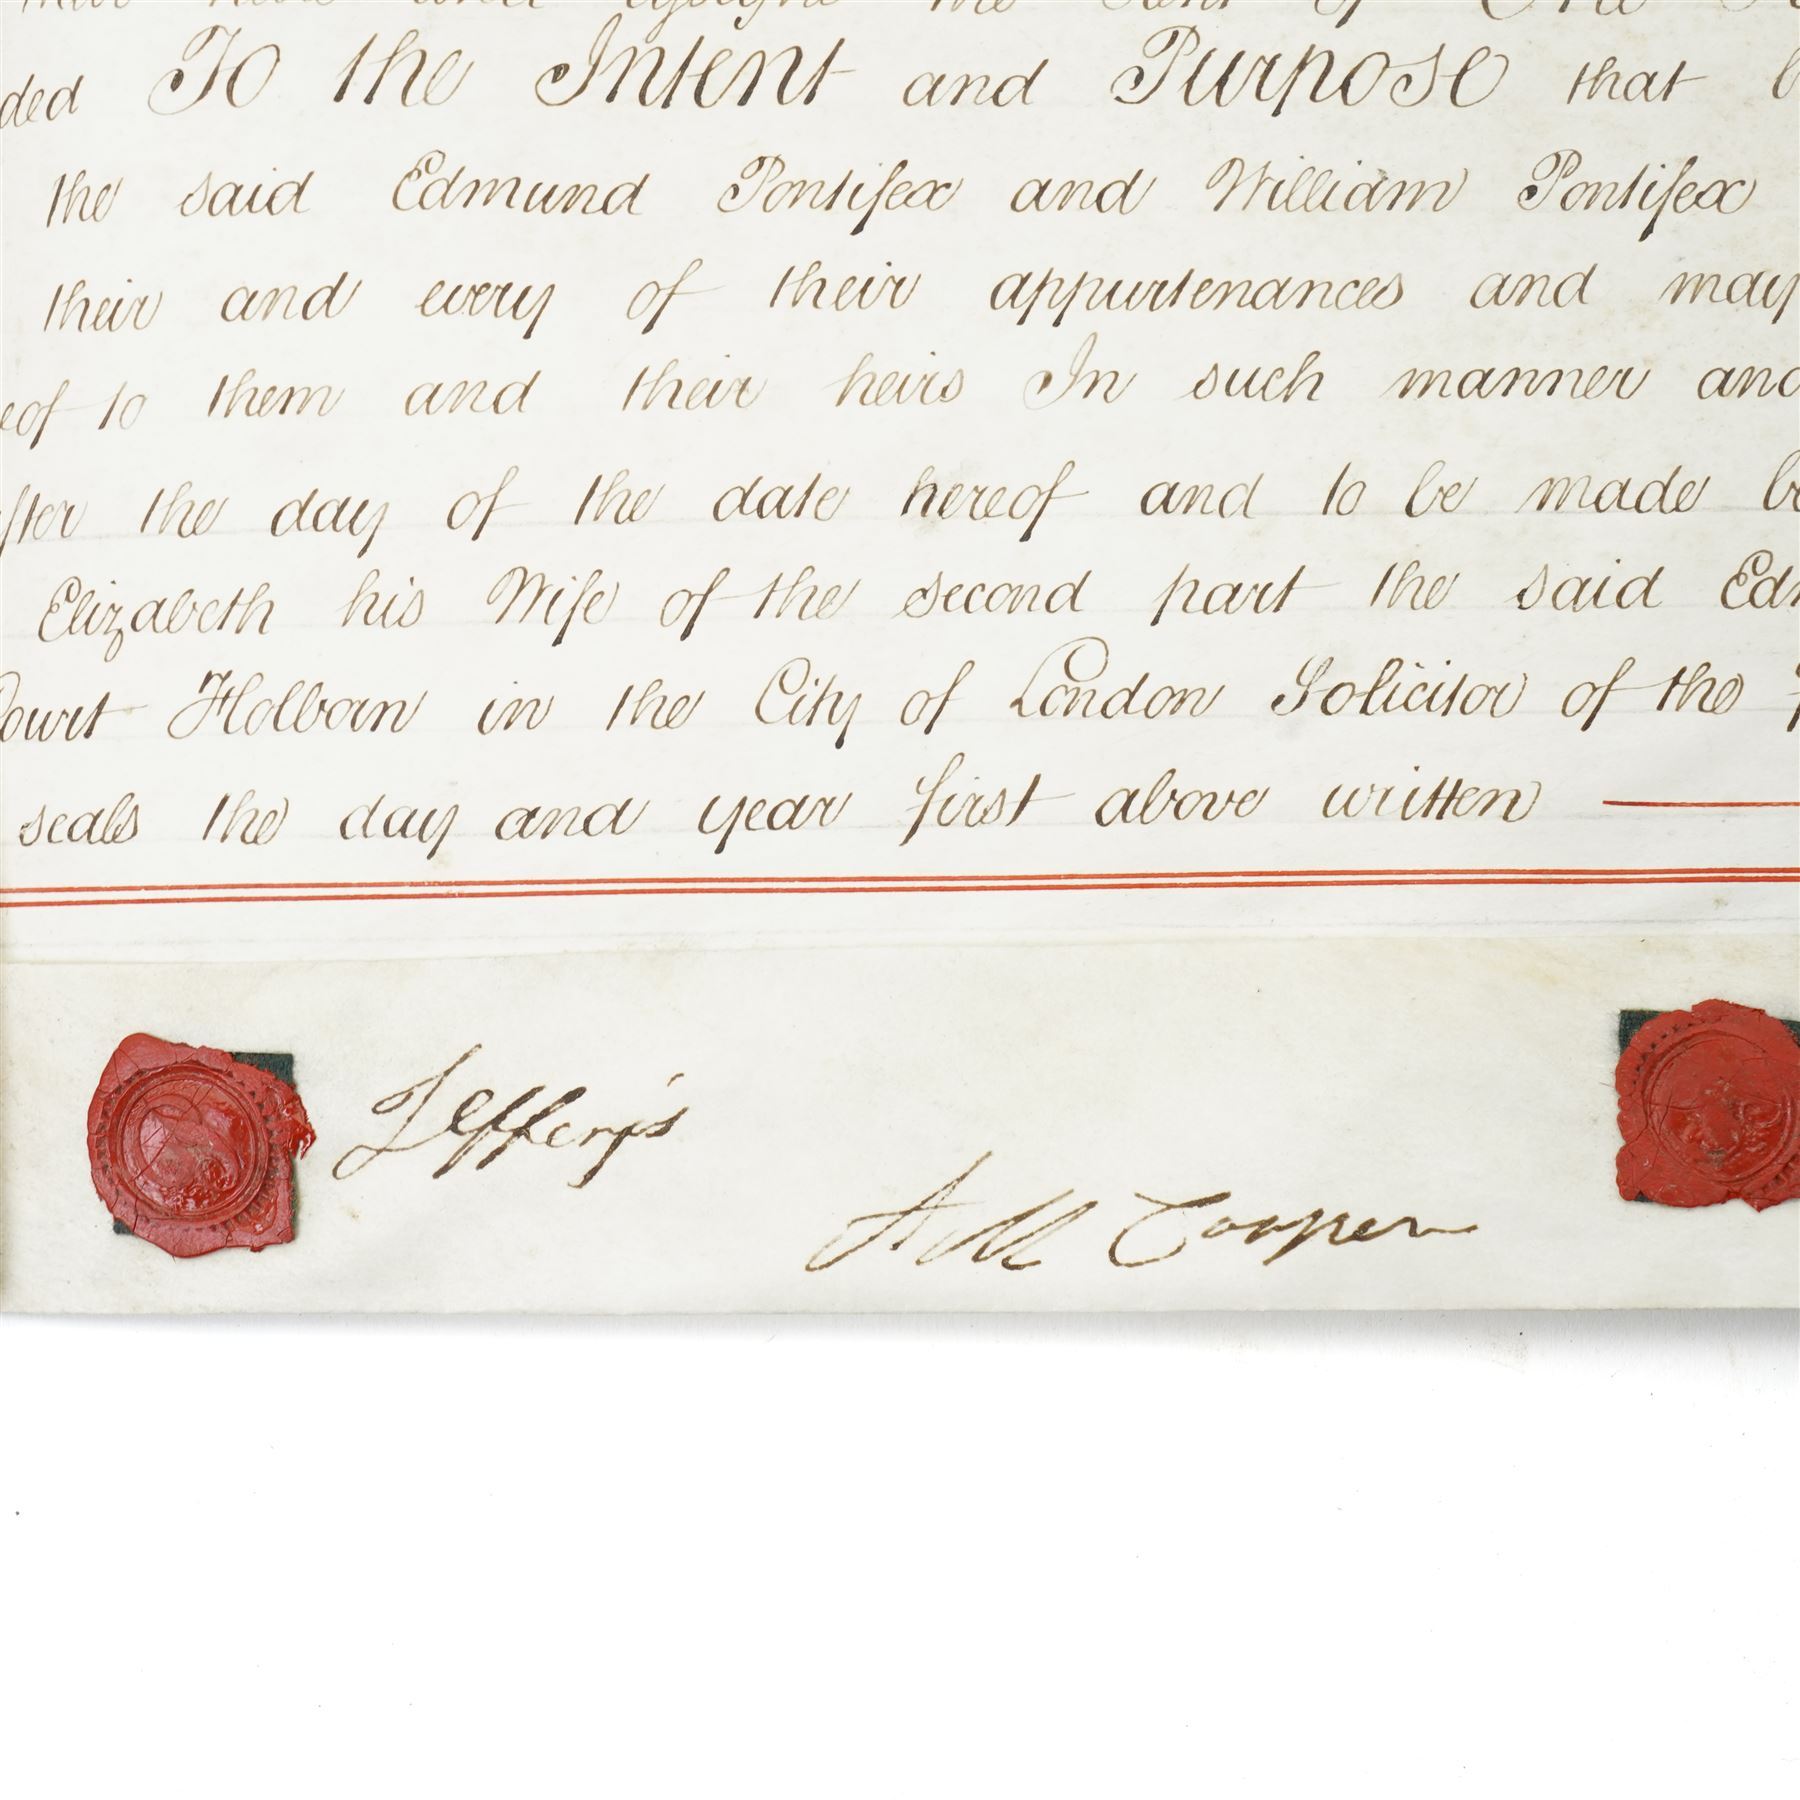 ded To the Intent and Purpose that
the said Edmund Pontifex and William Pontifex
their and every of their appurtenances and may
eof to them and their heirs In such manner and
after the day of the date hereof and to be made
Elizabeth his Wife of the second part the said Edm
Court Holborn in the City of London Solicitor of the
seals the day and year first above written
Jefferys
A M Cooper